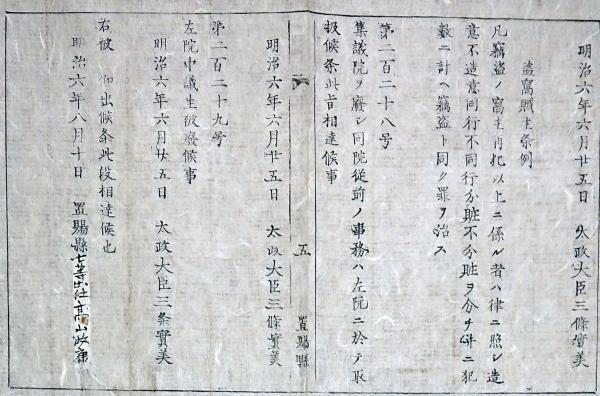 明治六年六月廿五日　太政大臣三條實美
盗窩賍主条例
凡竊盗ノ窩主再犯以上ニ係ル者ハ律ニ照シ造
意不造意同行不同行分賍不分賍ヲ分チ併ニ犯
数ニ計ヘ竊盗ト同ク罪ヲ治ス
第二百二十八号
集議院ヲ廢シ同院従前ノ事務ハ左院ニ於テ取
扱候条此旨相達候事
明治六年六月廿五日　太政大臣三條實美
五　置賜縣
第二百二十九号
左院中議生被廢候事
明治六年六月廿五日　太政大臣三条實美
右被　仰出候条此段相達候也
明治六年八月十日　置賜縣七等出仕髙山政康